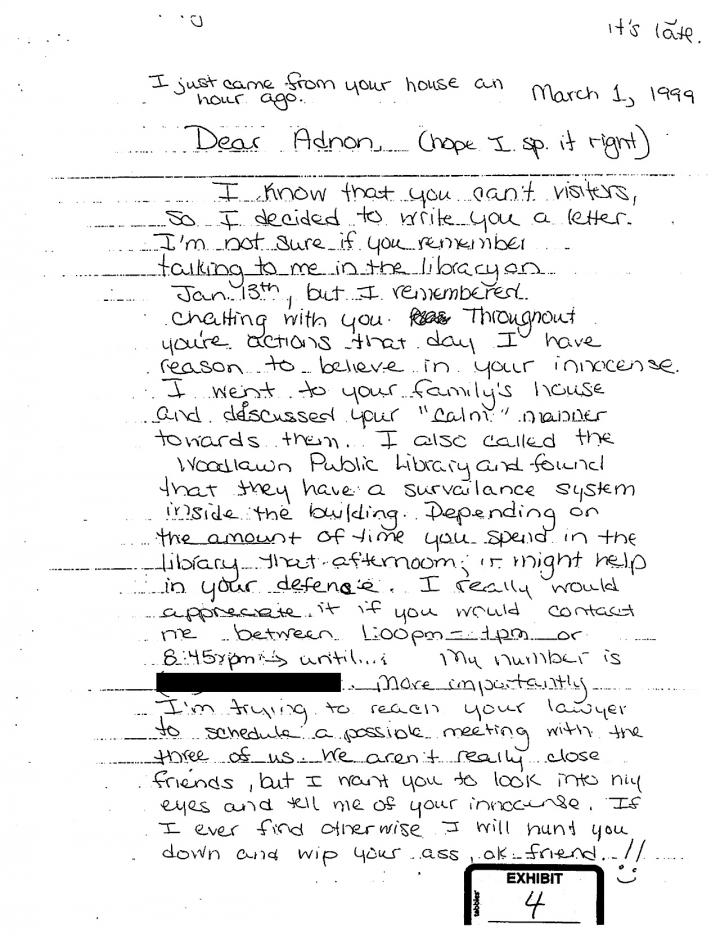 it's late.
I just came from your house an
hour ago.
March 1, 1999
Dear Adnon, (hope I sp. it right)
I know that you can't visitors,
so I decided to write you a letter.
I'm not sure if you remember
talking to me in the library on
Jan. 13th, but I remembered
chatting with you. Throughout
you're actions that day I have
reason to believe in your innocense.
I went to your family's house
and discussed your "calm" manner
towards them. I also called the
Woodlawn Public Library and found
that they have a survailance system
inside the building. Depending on
the amount of time you spend in the
library that afternoon, it might help
in your defense. I really would
appreciate it if you would contact
me between 1:00pm - 4pm or
8:45pm → until... My number is
. More importantly
I'm trying to reach your lawyer
to schedule a possible meeting with the
three of us. We aren't really close
friends, but I want you to look into my
eyes and tell me of your innocense. If
I ever find otherwise I will hunt you
down and wip your ass, ok friend. !!
EXHIBIT
4
tabbies